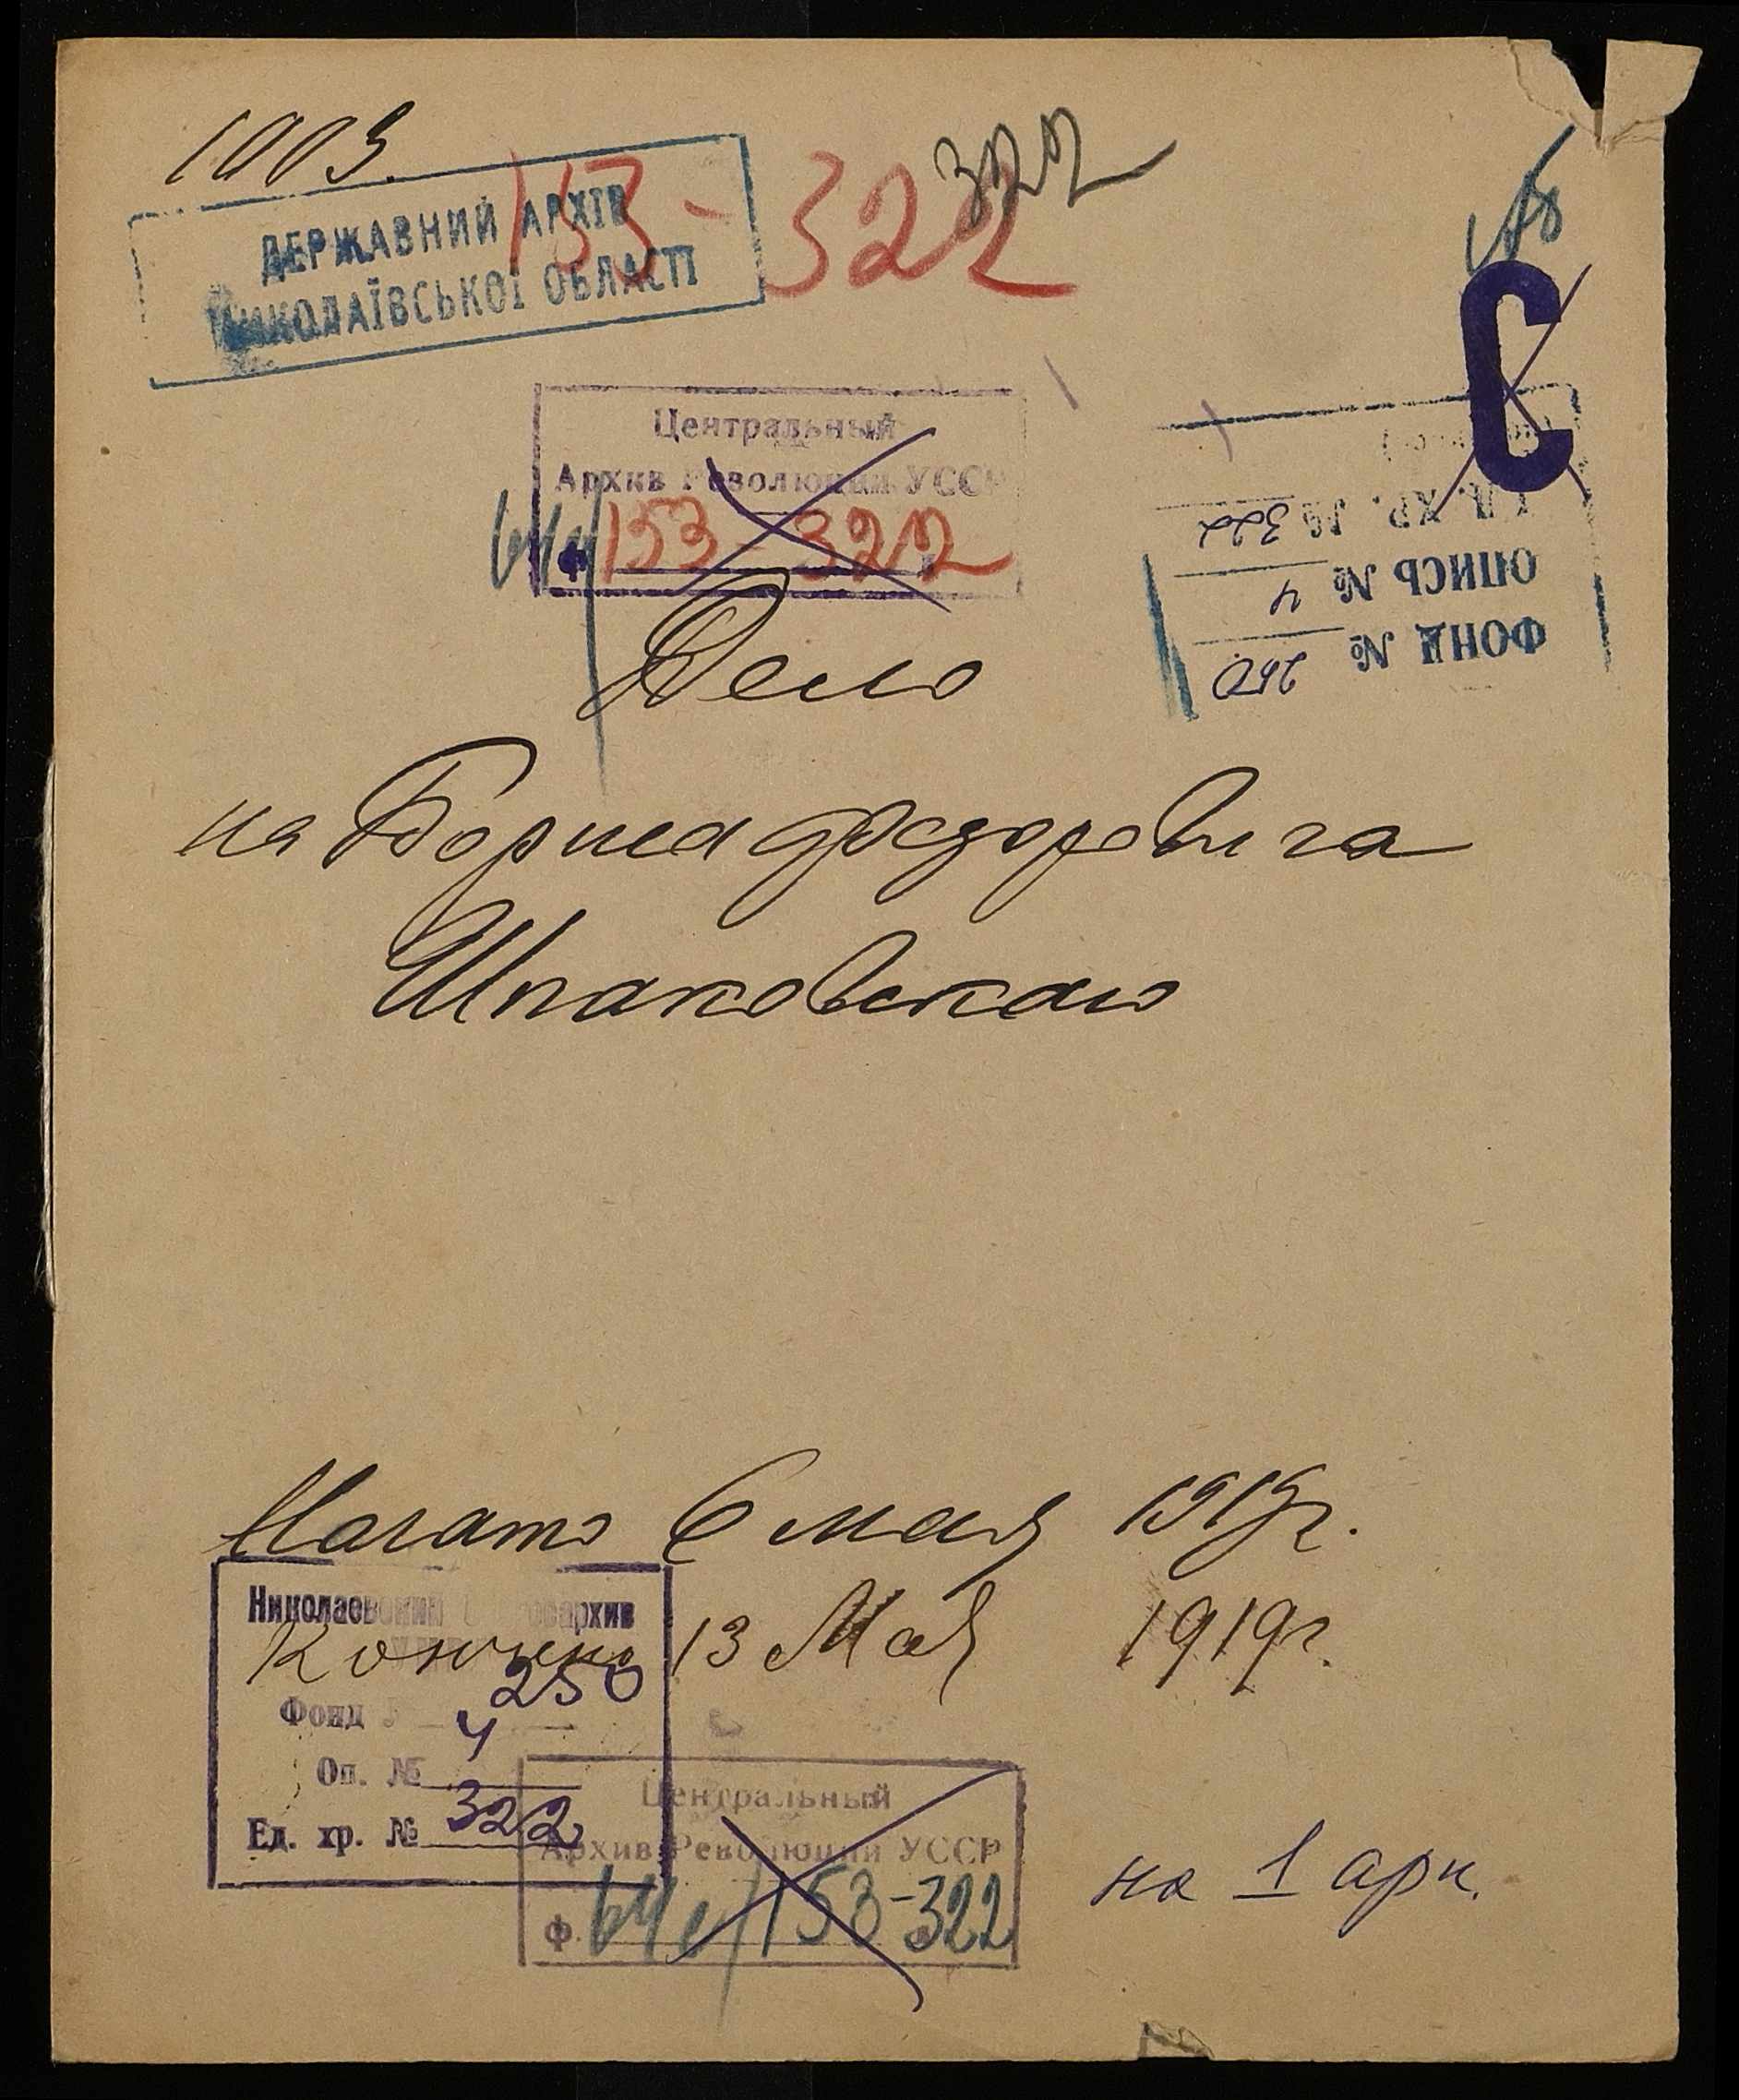 1003.
153-322
322
ДЕРЖАВНИЙ АРХІВ
МИКОЛАЇВСЬКОЇ ОБЛАСТІ
С
Центральный
Архив Революции УССР
ф. 153-322
ФОНД № 250
ОПИСЬ № 4
ЕД. ХР. № 322
Дело
на Бориса Федоровича
Шпаковскаго
Начато 6 мая 1919 г.
Кончено 13 Мая 1919 г.
Николаевский Облгосархив
Фонд № 250
Оп. № 4
Ед. хр. № 322
Центральный
Архив Революции УССР
ф. 153-322
на 1 арк.